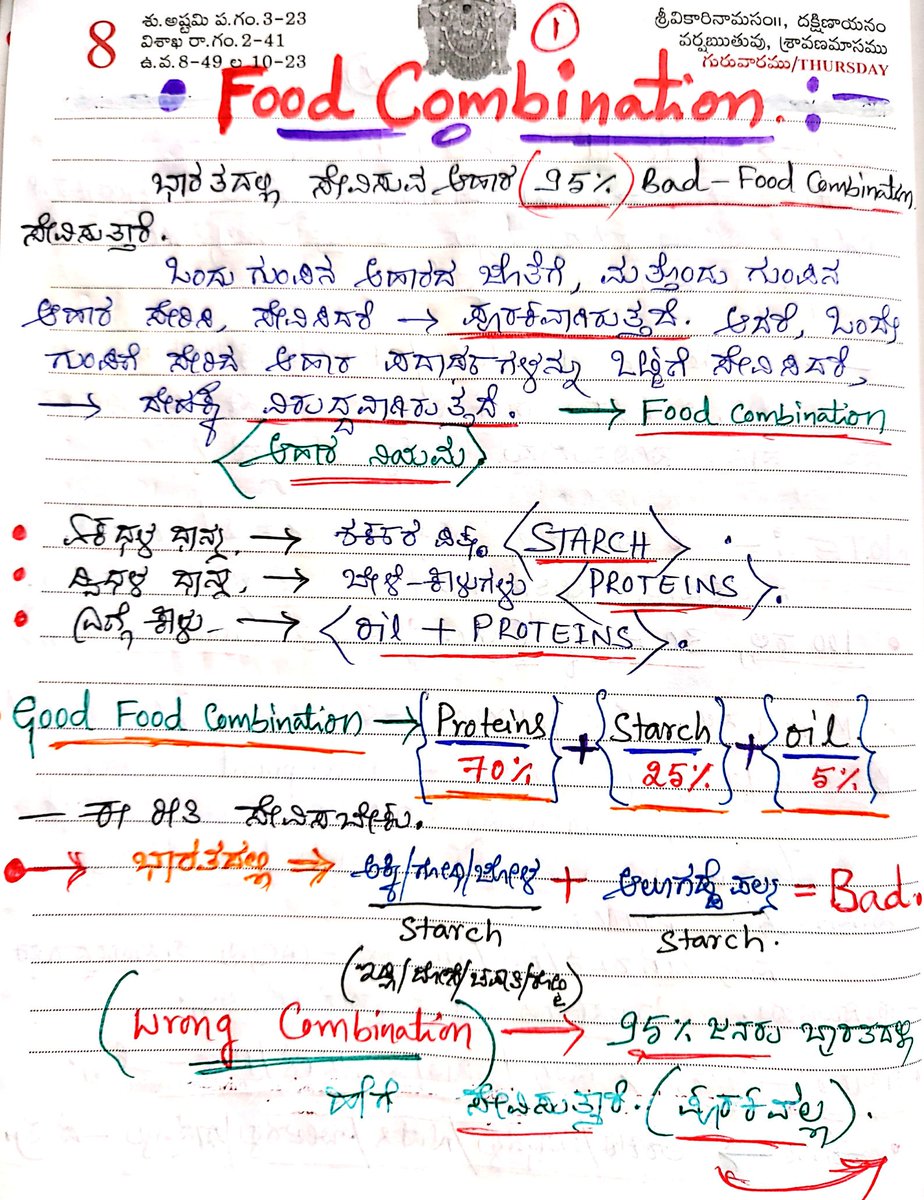 8
శు.అష్టమి ప.గం.3-23
విశాఖ రా.గం.2-41
ఉ.వ.8-49 ల 10-23
1
శ్రీవికారినామసం॥, దక్షిణాయనం
వర్షఋతువు, శ్రావణమాసము
గురువారము/THURSDAY
Food Combination.
ಭಾರತದಲ್ಲಿ ಸೇವಿಸುವ ಆಹಾರ (95%) Bad-Food Combination
ಸೇವಿಸುತ್ತಾರೆ.
ಒಂದು ಗುಂಪಿನ ಆಹಾರದ ಜೊತೆಗೆ, ಮತ್ತೊಂದು ಗುಂಪಿನ
ಆಹಾರ ಸೇರಿಸಿ, ಸೇವಿಸಿದರೆ → ಪೂರಕವಾಗಿರುತ್ತದೆ. ಆದರೆ, ಒಂದೇ
ಗುಂಪಿಗೆ ಸೇರಿದ ಆಹಾರ ಪದಾರ್ಥಗಳನ್ನು ಒಟ್ಟಿಗೆ ಸೇವಿಸಿದರೆ,
→ ದೇಹಕ್ಕೆ ವಿರುದ್ಧವಾಗಿರುತ್ತದೆ. → Food combination
<ಆಹಾರ ನಿಯಮ>
• ಏಕದಳ ಧಾನ್ಯ → ಶರ್ಕರ ಪಿಷ್ಠ <STARCH>.
• ದ್ವಿದಳ ಧಾನ್ಯ → ಬೇಳೆ-ಕಾಳುಗಳು <PROTEINS>.
• ಎಣ್ಣೆ ಕಾಳು → <Oil + PROTEINS>.
Good Food Combination → {Proteins 70%} + {Starch 25%} + {Oil 5%}
— ಈ ರೀತಿ ಸೇವಿಸಬೇಕು.
→ ಭಾರತದಲ್ಲಿ ⇒ ಅಕ್ಕಿ/ಗೋಧಿ/ಜೋಳ + ಆಲುಗಡ್ಡೆ ಪಲ್ಯ = Bad.
Starch Starch.
(ಇಡ್ಲಿ/ದೋಸೆ/ಚಪಾತಿ/ರೊಟ್ಟಿ)
(Wrong Combination) → 95% ಜನರು ಭಾರತದಲ್ಲಿ
ಹೀಗೆ ಸೇವಿಸುತ್ತಾರೆ. (ಪೂರಕವಲ್ಲ).